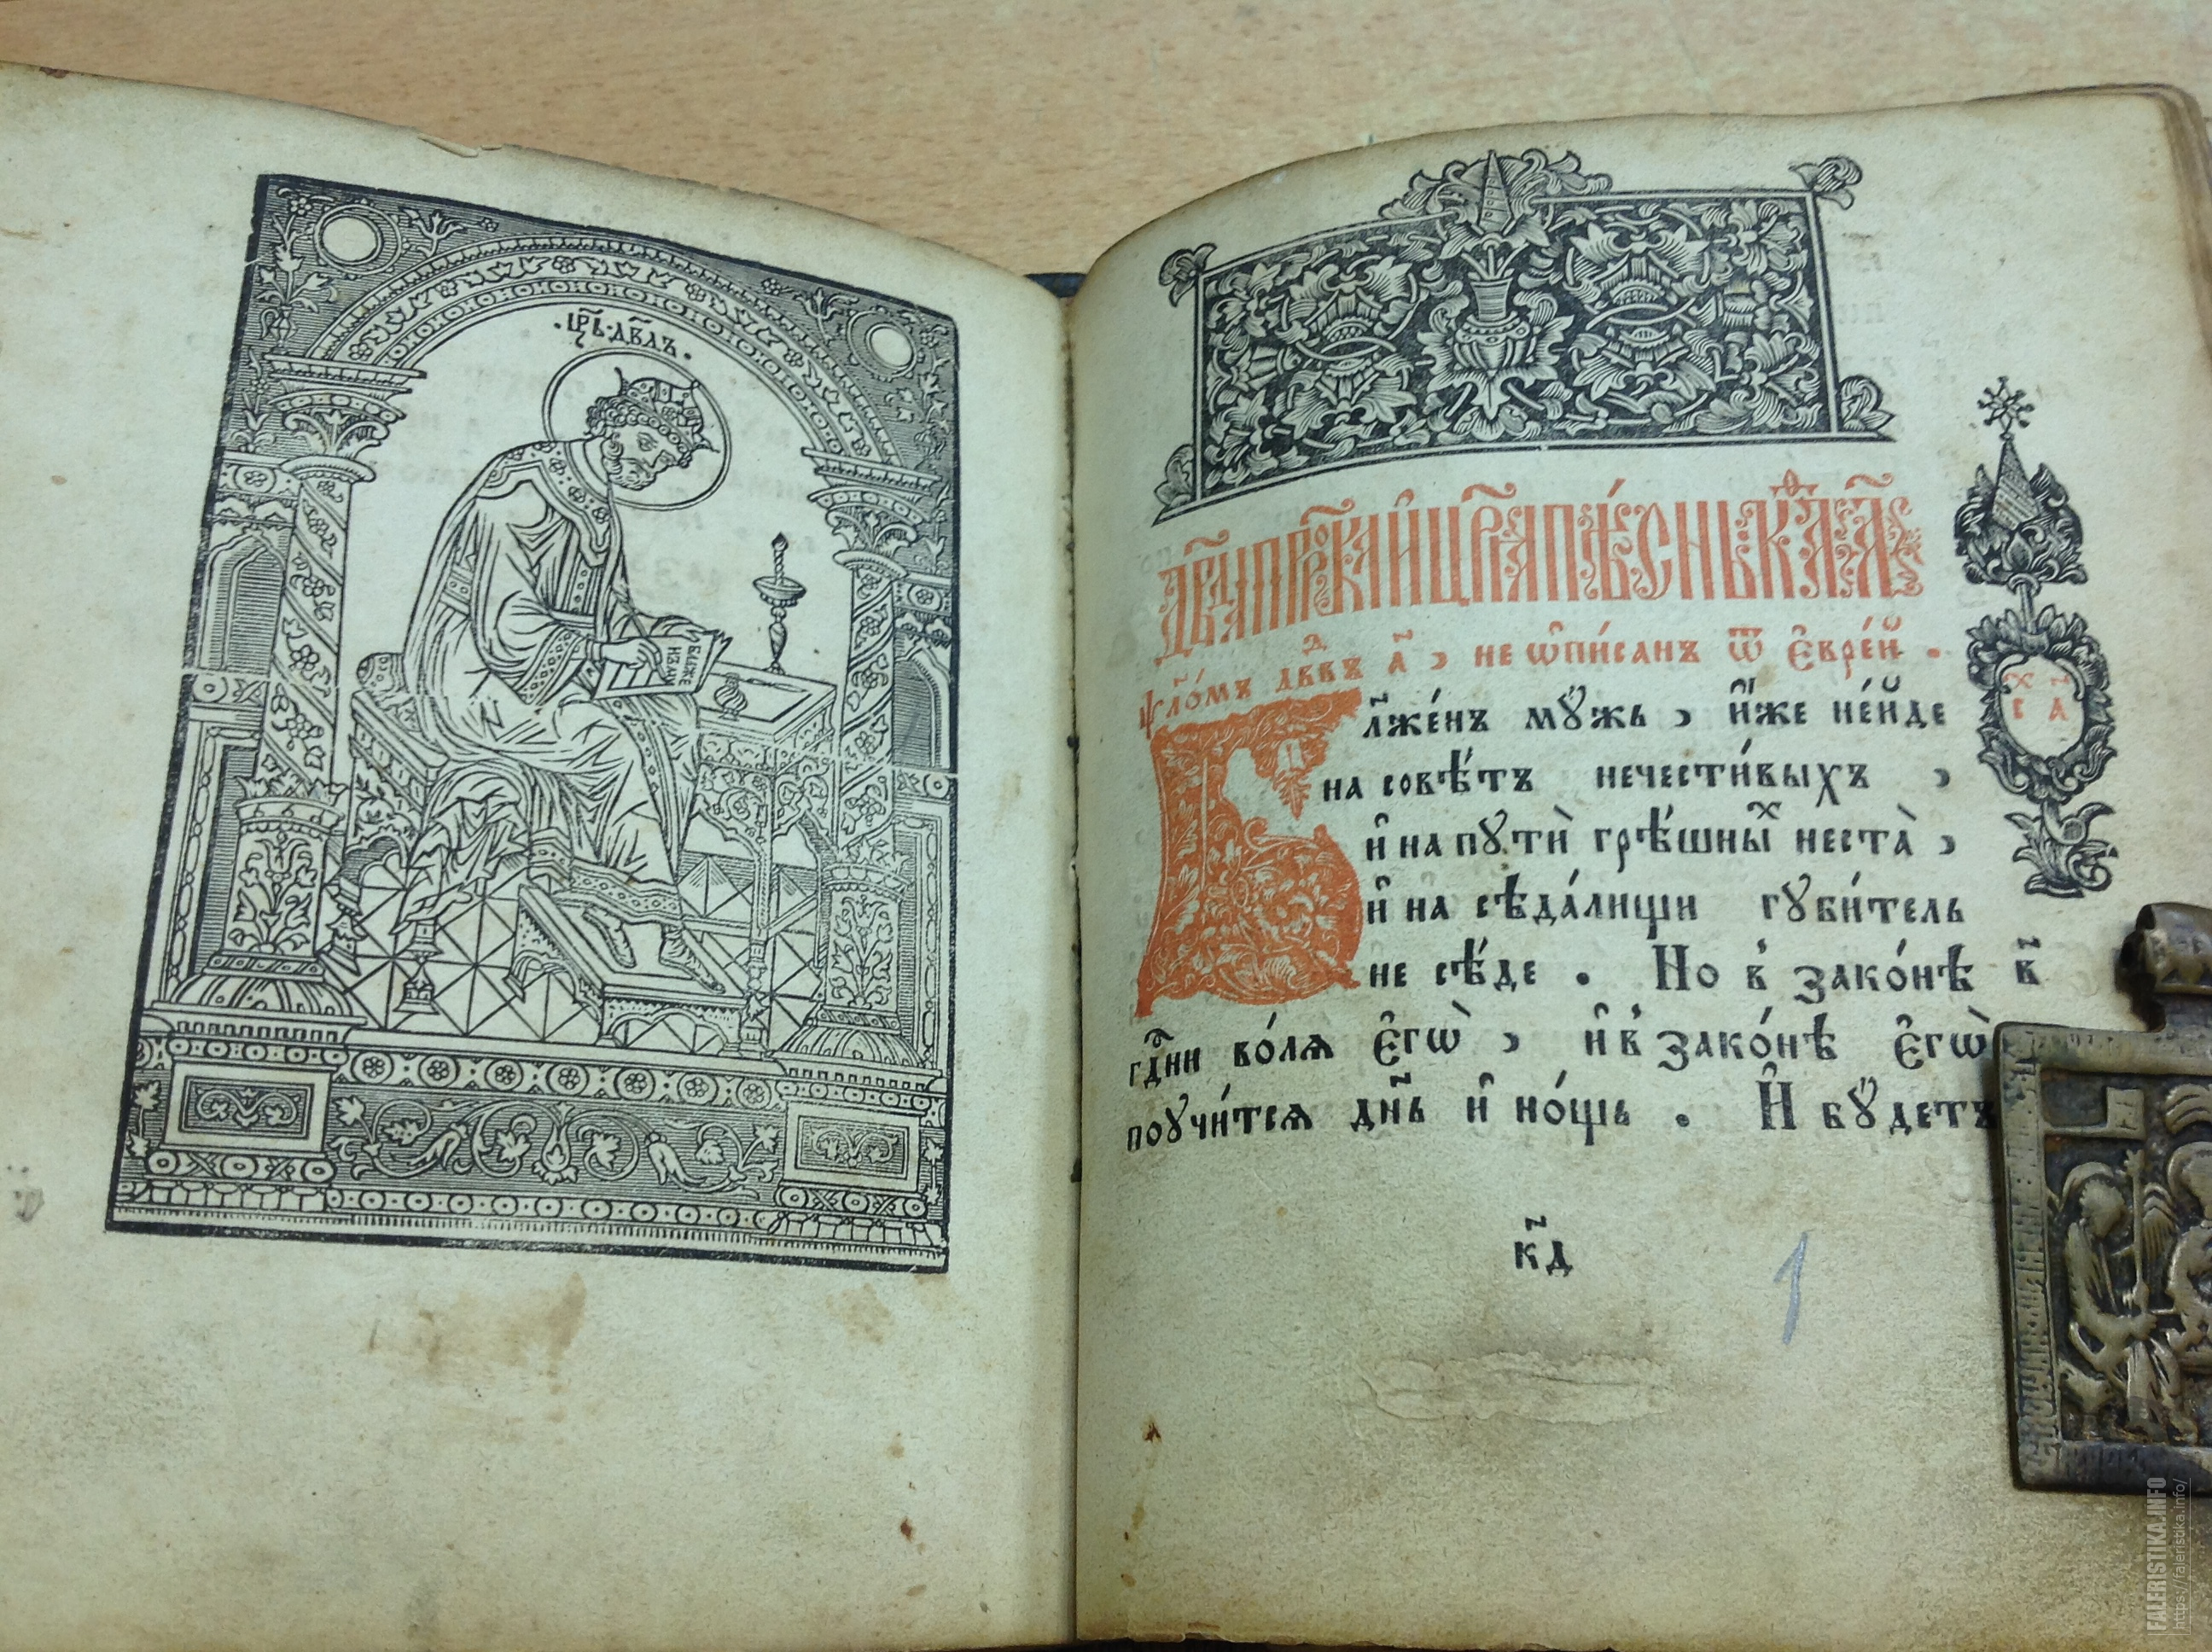 црⷭ҇ь · дв҃дъ ·
блже
нъ м
дв҃да прⷪ҇рока и҆ црѧ̀ пѣ́снь к҃аѳ҃а
ѱало́мъ дв҃дъ а҃ , не ѡ҆пи́санъ ѿ є҆врє́й .
Бл҃же́нъ мꙋ́жъ , и҆́же не и҆́де
на совѣ́тъ нечести́выхъ ,
и҆ на пꙋтѝ грѣ́шныⷯ не ста̀ ,
и҆ на сѣда́лищи гꙋби́тель
не сѣ́де . Но в̾ зако́нѣ
гд҇ни во́лѧ є҆гѡ̀ , и҆ в̾ зако́нѣ є҆гѡ̀
поꙋчи́тсѧ дн҃ь и҆ но́щь . И҆ бꙋ́детъ
х҃
г҃ а҃
в҃
к҃д
1
FALERISTIKA.INFO
https://faleristika.info/